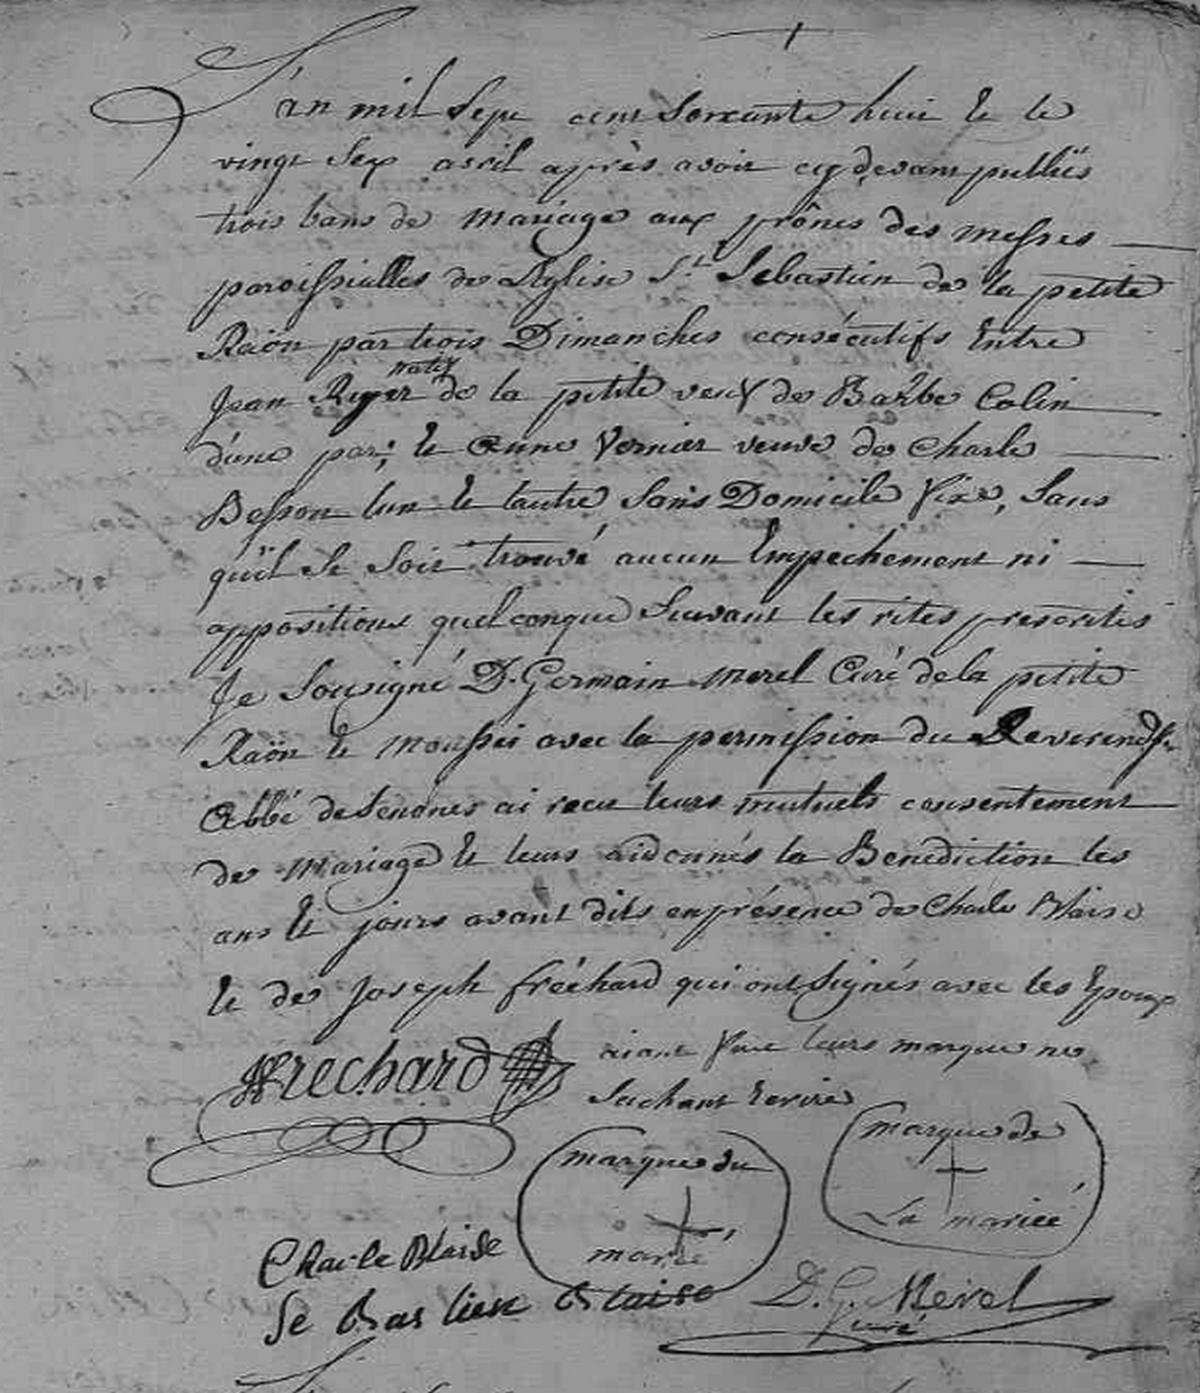 L'an mil Sept cent Soixante huit et le
vingt Sep avril après avoir cy devant publiés
trois bans de Mariage aux prônes des Messes
paroissialles de l'Eglise St. Sebastien de la petite
Raön par trois Dimanches consécutifs Entre
natif
Jean Riyer de la petite veuf de Barbe Colin
d'une part; et Anne Vernier veuve de Charle
Besson lun et lautre Sans Domicile Fixe, Sans
qu'il Se Soit trouvé aucun Empechement ni
appositions quelconque Suivant les rites prescrites
Je Sousigné D. Germain Morel Curé de la petite
Raön et Moussei avec la permission du Reverend
Abbé de Senones ai recu leurs mutuels consentement
de Mariage et leurs ai donnés la Benediction les
ans et jours avant dits en présence de Charle Blaise
et de Joseph fréchard qui ont Signés avec les Epoux
aiant Fait leurs marque ne
Sachant Ecrire
Frechard
marque du
marié
marque de
La mariée
Charle Blaise
Se Bas tien Blaise
D. G. Merel
curé